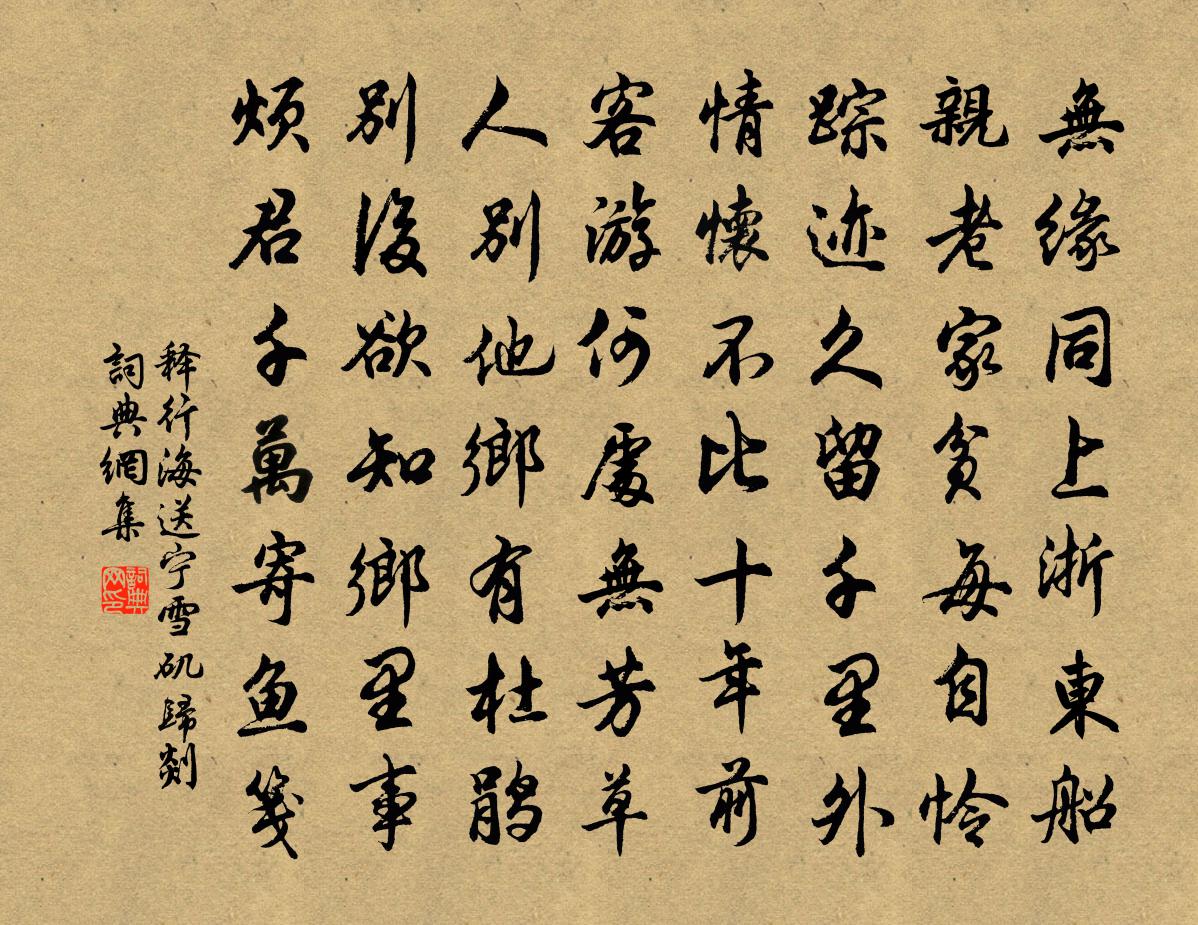 無缘同上浙東船
親老家贫每自怜
踪迹久留千里外
情懷不比十年前
客游何處無芳草
人别他鄉有杜鹃
别後欲知鄉里事
煩君千萬寄鱼箋
释行海送宁雪矶歸剡
詞典網集
詞典网印